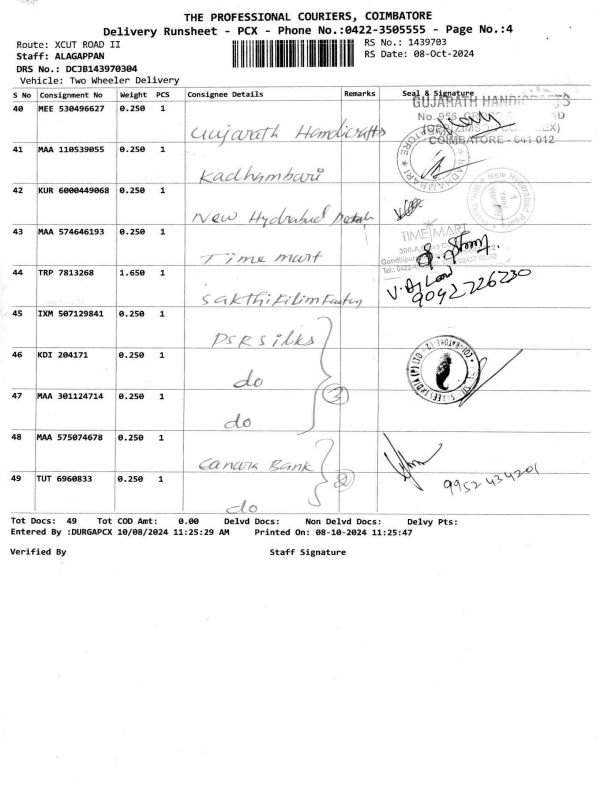 THE PROFESSIONAL COURIERS, COIMBATORE
Delivery Runsheet - PCX - Phone No.:0422-3505555 - Page No.:4
Route: XCUT ROAD II RS No.: 1439703
Staff: ALAGAPPAN RS Date: 08-Oct-2024
DRS No.: DCJB143970304
Vehicle: Two Wheeler Delivery
S No Consignment No Weight PCS Consignee Details Remarks Seal & Signature
GUJARATH HANDICRAFTS
40 MEE 530496627 0.250 1
Gujarath Handicrafts
COIMBATORE - 641 012
41 MAA 110539055 0.250 1
KADHAMBARI
Kadhambari
42 KUR 6000449068 0.250 1
New Hyderabad
New Hydrabad
43 MAA 574646193 0.250 1
TIME MART
Time mart
44 TRP 7813268 1.650 1
9042726230
Sakthi
45 IXM 507129841 0.250 1
PSR Silks
46 KDI 204171 0.250 1
do
47 MAA 301124714 0.250 1
3
do
48 MAA 575074678 0.250 1
Canara Bank
49 TUT 6960833 0.250 1
2
9952434201
do
Tot Docs: 49 Tot COD Amt: 0.00 Delvd Docs: Non Delvd Docs: Delvy Pts:
Entered By :DURGAPCX 10/08/2024 11:25:29 AM Printed On: 08-10-2024 11:25:47
Verified By Staff Signature